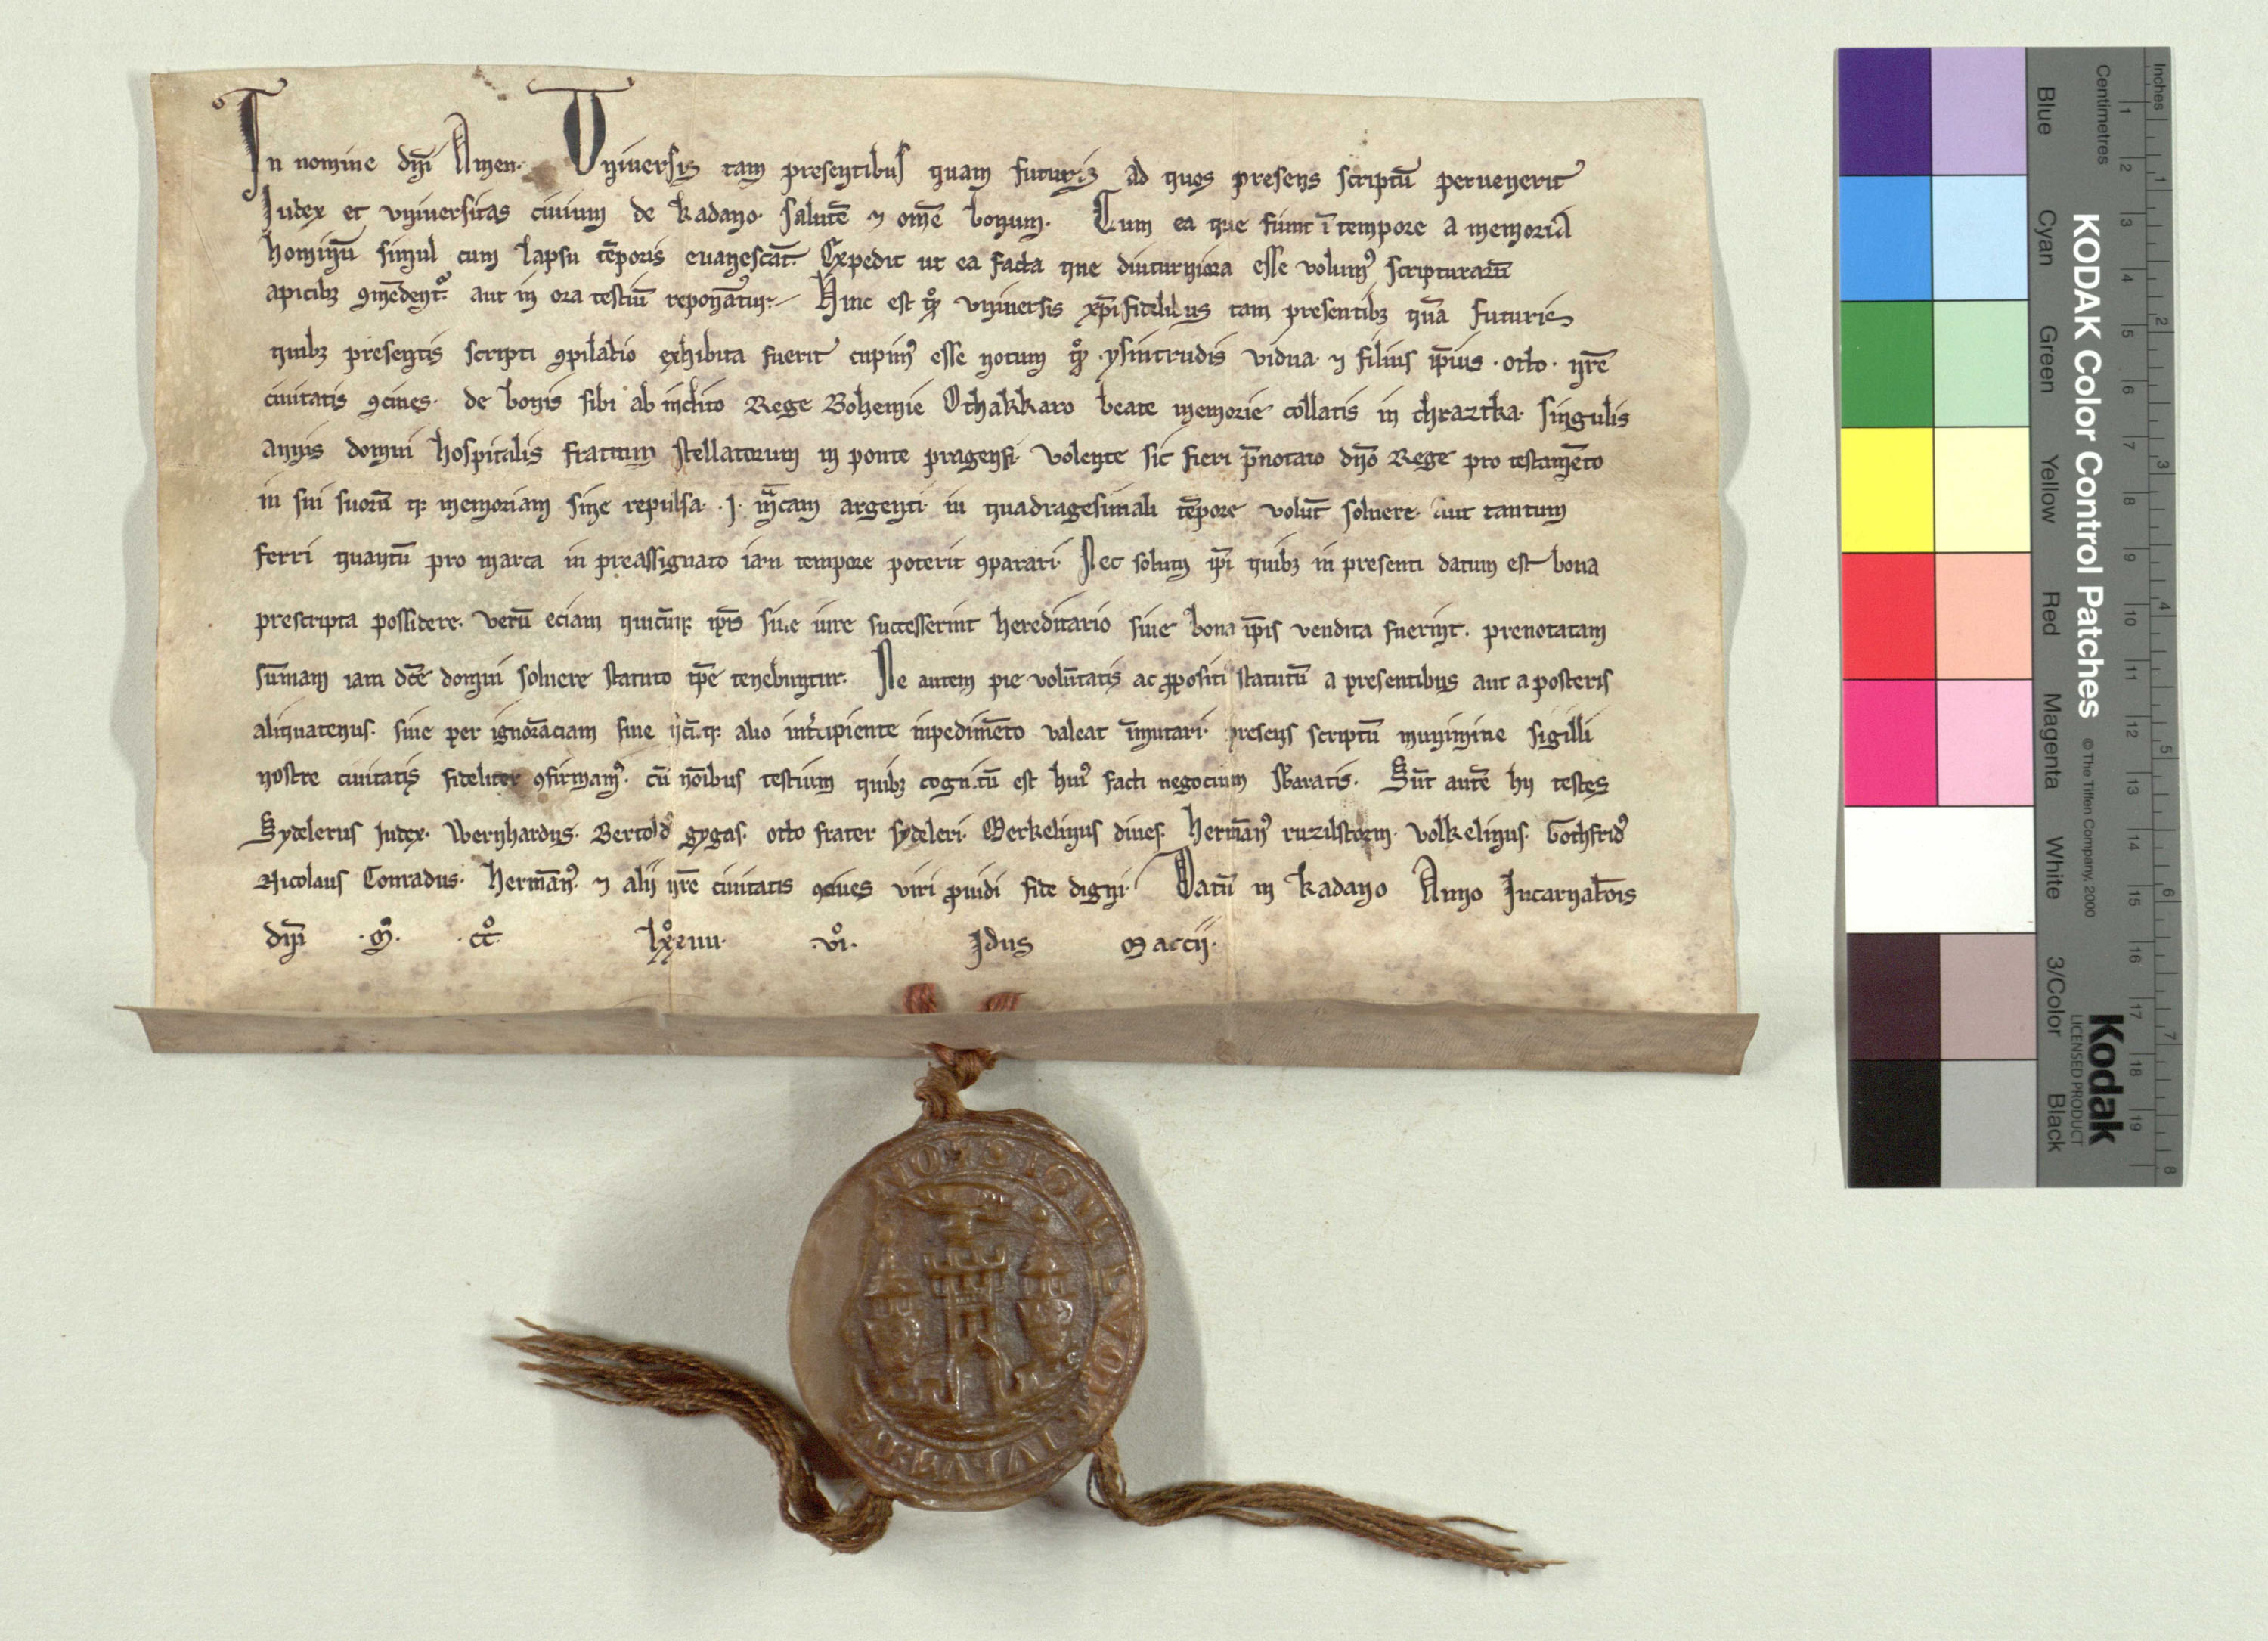 In nomine dn̄i Amen. Vniuersis tam presentibus quam futuris ad quos presens scriptū peruenerit
Iudex et vniuersitas ciuium de kadano. salutē ⁊ om̄e bonum. Cum ea que fiunt ī tempore a memoria
hominū simul cum lapsu tēporis euanescāt. Expedit ut ea facta que diuturniora esse volumꝰ scripturarū
apicibꝫ ꝯmēdent᷑. aut in ora testiū reponāt᷑. Hinc est qͦꝫ vniuersis xp̄i fidelibus tam presentibꝫ quā futuris
quibꝫ presentis scripti ꝯpilatio exhibita fuerit cupimꝰ esse notum qͦꝫ ysintrudis vidua ⁊ filius ip̄ius. otto. nr̄e
ciuitatis ꝯciues. de bonis sibi ab inclito Rege Bohemie Othakkaro beate memorie collatis in chraztka. singulis
annis domui hospitalis fratrum stellatorum in ponte pragensi. volente sic fieri p̄notato dn̄o Rege pro testamēto
in sui suorū qꝫ memoriam sine repulsa. .j. mᵃcam argenti in quadragesimali tēpore volūt soluere. aut tantum
ferri quantū pro marca in preassignato iam tempore poterit ꝯparari. Nec solum ip̄i quibꝫ in presenti datum est bona
prescripta possidere. verū eciam quicūqꝫ ip̄is siue iure successerint hereditario siue bona ip̄is vendita fuerint. prenotatam
sūmam iam dc̄e domui soluere statuto tp̄e tenebuntur. Ne autem pie volūtatis ac ꝓpositi statutū a presentibus aut a posteris
aliquatenus. siue per ignorāciam siue alio intˢcipiente inpedimēto valeat īmutari. presens scriptū munimine sigilli
nostre ciuitatis fideliter ꝯfirmamꝰ. cū nōibus testium quibꝫ cognitū est huiꝰ facti negocium Sūt autē hij testes
Sydelerus Iudex. Wernhardus. Bertold gygas. otto frater sydeleri. Merkelinus diues. Hermānꝰ ruzilstorm. volkelinus. Gothfridꝰ
Nicolaus Conradus. Hermānꝰ. ⁊ alij nr̄e ciuitatis ꝯciues viri ꝓuidi fide digni. Datū in kadano Anno Incarnatōis
dn̄i .mͦ. .ccͦ. lxͦxuiii. .vͦi. Idus Marcij.
SIGILLVM
KODAK Color Control Patches
© The Tiffen Company, 2000
Kodak
LICENSED PRODUCT
Blue Cyan Green Yellow Red Magenta White 3/Color Black
Centimetres 1 2 3 4 5 6 7 8 9 10 11 12 13 14 15 16 17 18 19
Inches 1 2 3 4 5 6 7 8